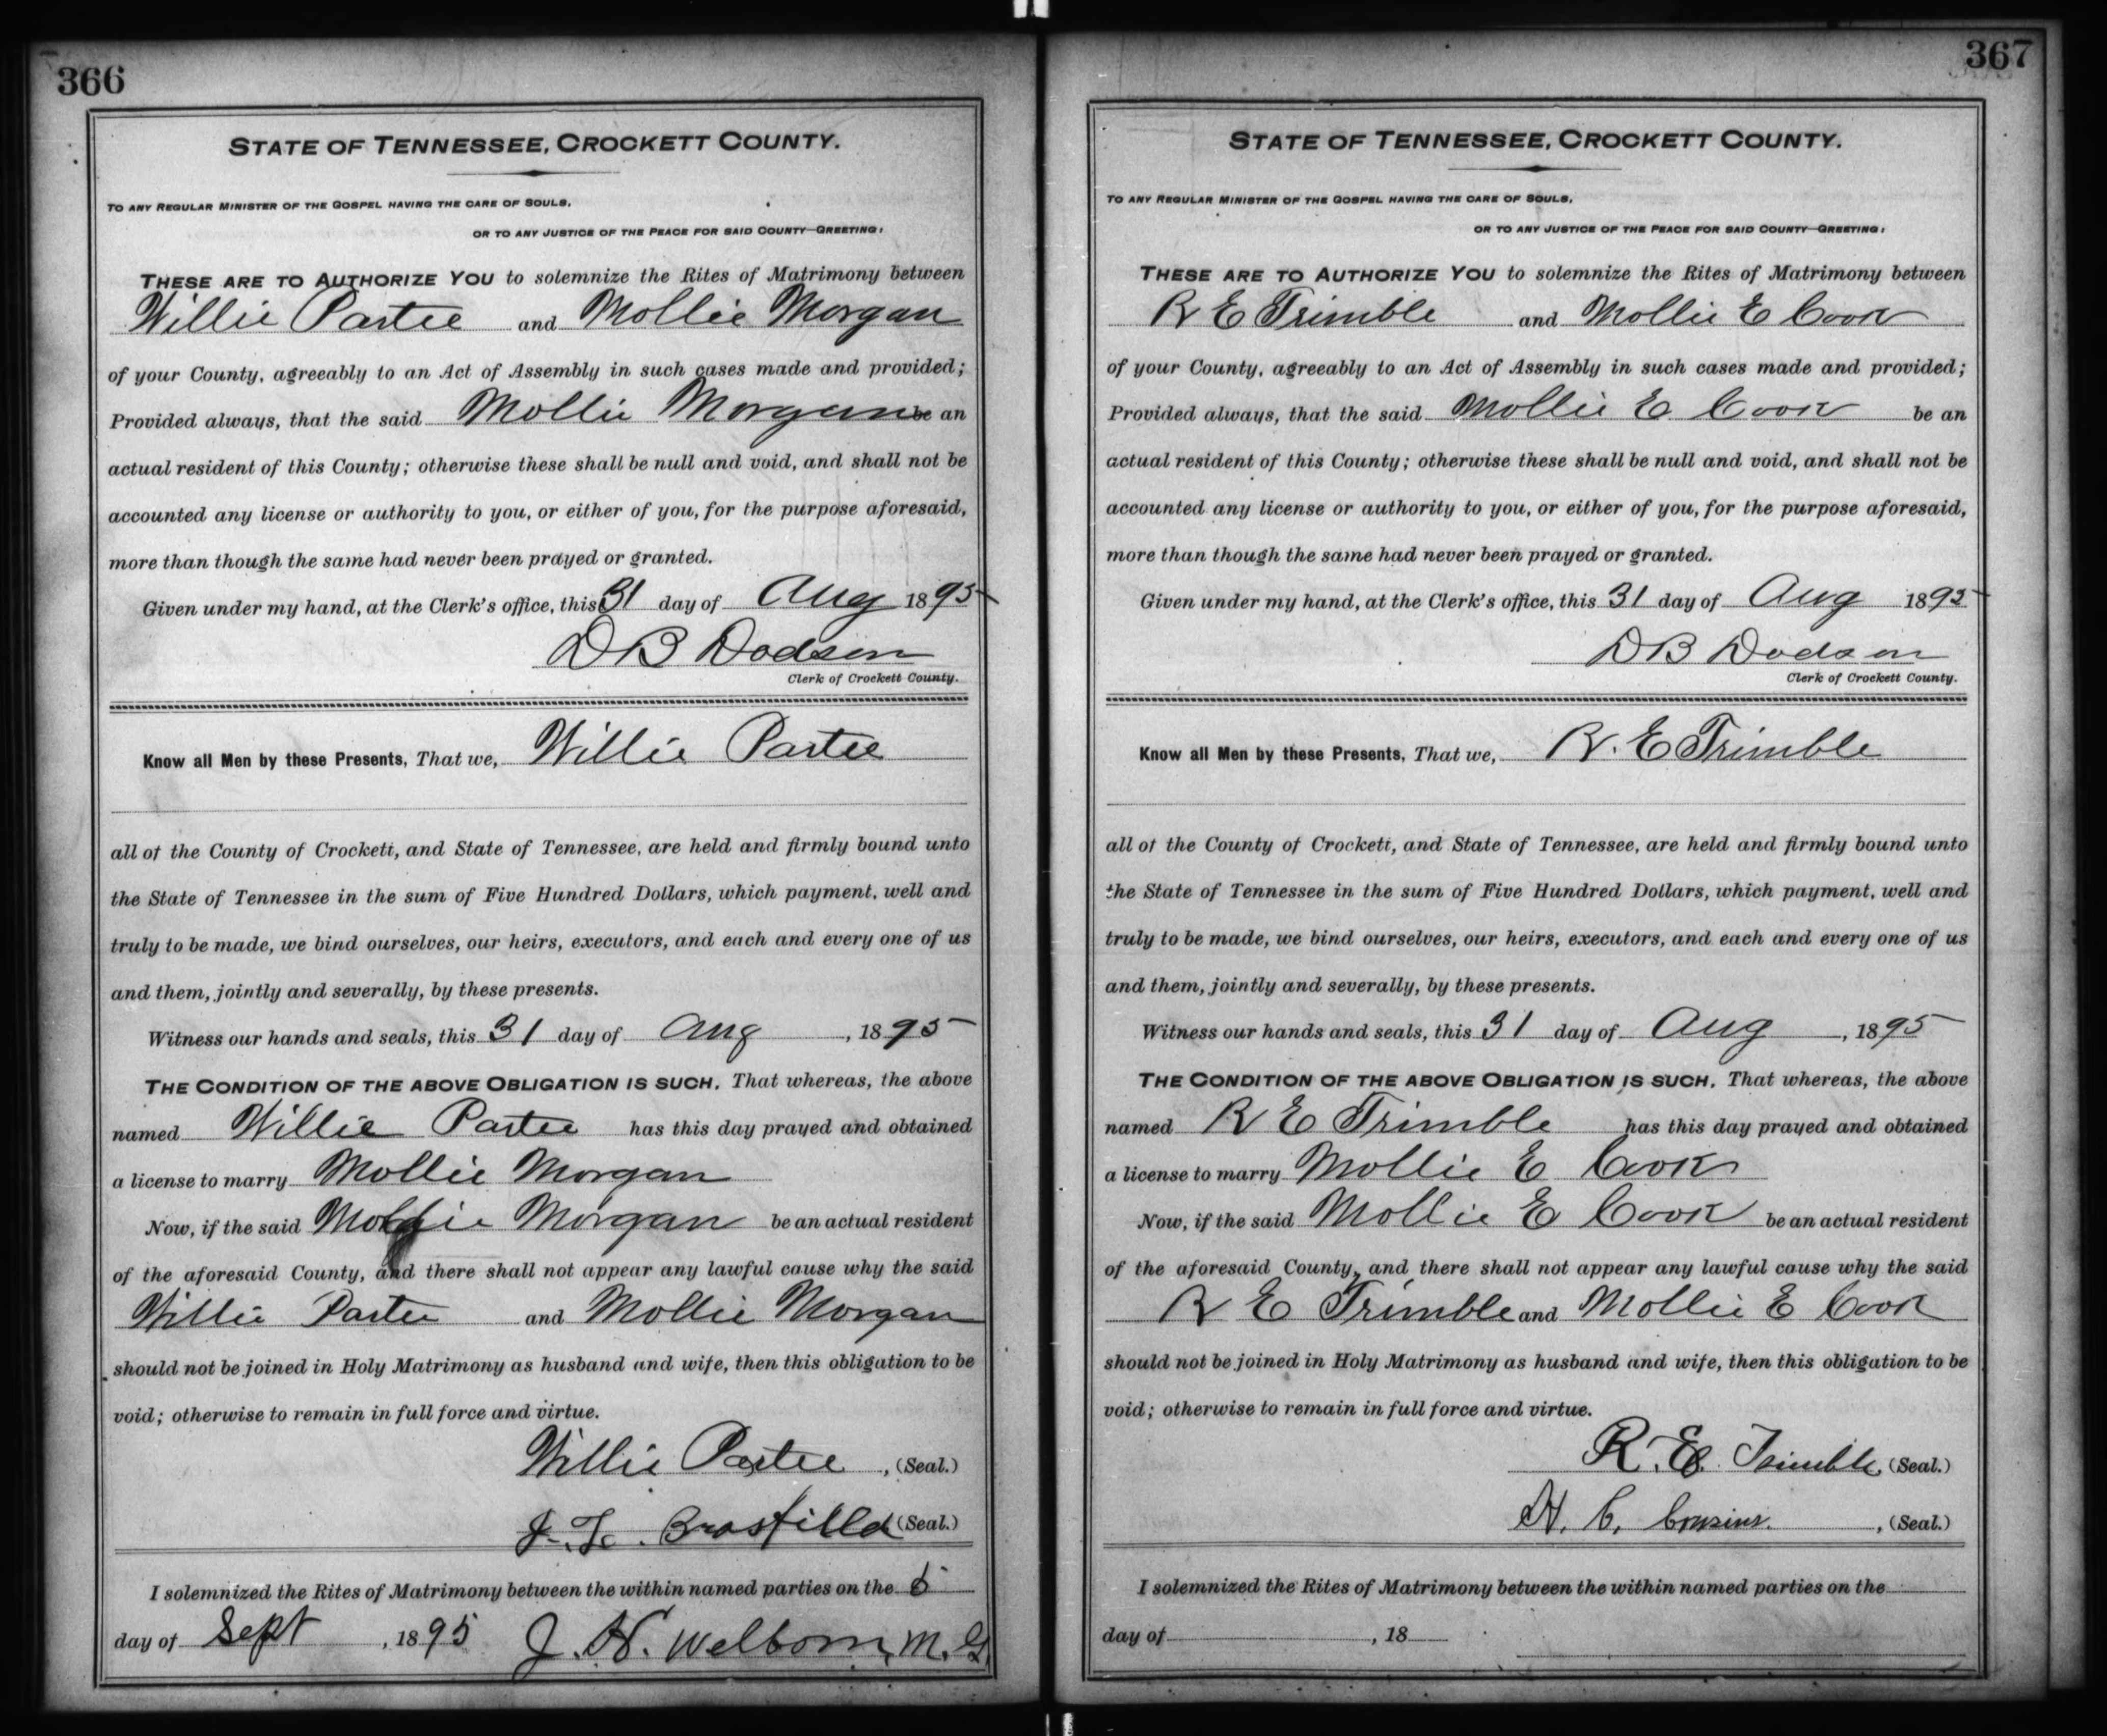 366
STATE OF TENNESSEE, CROCKETT COUNTY.
TO ANY REGULAR MINISTER OF THE GOSPEL HAVING THE CARE OF SOULS,
OR TO ANY JUSTICE OF THE PEACE FOR SAID COUNTY—GREETING:
THESE ARE TO AUTHORIZE YOU to solemnize the Rites of Matrimony between
Willie Partee and Mollie Morgan
of your County, agreeably to an Act of Assembly in such cases made and provided;
Provided always, that the said Mollie Morgan be an
actual resident of this County; otherwise these shall be null and void, and shall not be
accounted any license or authority to you, or either of you, for the purpose aforesaid,
more than though the same had never been prayed or granted.
Given under my hand, at the Clerk's office, this 31 day of Aug 1895
D B Dodson
Clerk of Crockett County.
Know all Men by these Presents, That we, Willie Partee
all of the County of Crockett, and State of Tennessee, are held and firmly bound unto
the State of Tennessee in the sum of Five Hundred Dollars, which payment, well and
truly to be made, we bind ourselves, our heirs, executors, and each and every one of us
and them, jointly and severally, by these presents.
Witness our hands and seals, this 31 day of Aug, 1895
THE CONDITION OF THE ABOVE OBLIGATION IS SUCH. That whereas, the above
named Willie Partee has this day prayed and obtained
a license to marry Mollie Morgan
Now, if the said Mollie Morgan be an actual resident
of the aforesaid County, and there shall not appear any lawful cause why the said
Willie Partee and Mollie Morgan
should not be joined in Holy Matrimony as husband and wife, then this obligation to be
void; otherwise to remain in full force and virtue.
Willie Partee, (Seal.)
Brasfilld (Seal.)
I solemnized the Rites of Matrimony between the within named parties on the
day of Sept, 1895 J. H. Welborn, M. G.
367
STATE OF TENNESSEE, CROCKETT COUNTY.
TO ANY REGULAR MINISTER OF THE GOSPEL HAVING THE CARE OF SOULS,
OR TO ANY JUSTICE OF THE PEACE FOR SAID COUNTY—GREETING:
THESE ARE TO AUTHORIZE YOU to solemnize the Rites of Matrimony between
R E Trimble and Mollie E Cook
of your County, agreeably to an Act of Assembly in such cases made and provided;
Provided always, that the said Mollie E Cook be an
actual resident of this County; otherwise these shall be null and void, and shall not be
accounted any license or authority to you, or either of you, for the purpose aforesaid,
more than though the same had never been prayed or granted.
Given under my hand, at the Clerk's office, this 31 day of Aug 1895
D B Dodson
Clerk of Crockett County.
Know all Men by these Presents, That we, R. E Trimble
all of the County of Crockett, and State of Tennessee, are held and firmly bound unto
the State of Tennessee in the sum of Five Hundred Dollars, which payment, well and
truly to be made, we bind ourselves, our heirs, executors, and each and every one of us
and them, jointly and severally, by these presents.
Witness our hands and seals, this 31 day of Aug, 1895
THE CONDITION OF THE ABOVE OBLIGATION IS SUCH. That whereas, the above
named R E Trimble has this day prayed and obtained
a license to marry Mollie E Cook
Now, if the said Mollie E Cook be an actual resident
of the aforesaid County, and there shall not appear any lawful cause why the said
R E Trimble and Mollie E Cook
should not be joined in Holy Matrimony as husband and wife, then this obligation to be
void; otherwise to remain in full force and virtue.
R. E. Trimble, (Seal.)
H. C. Cousins., (Seal.)
I solemnized the Rites of Matrimony between the within named parties on the
day of , 18